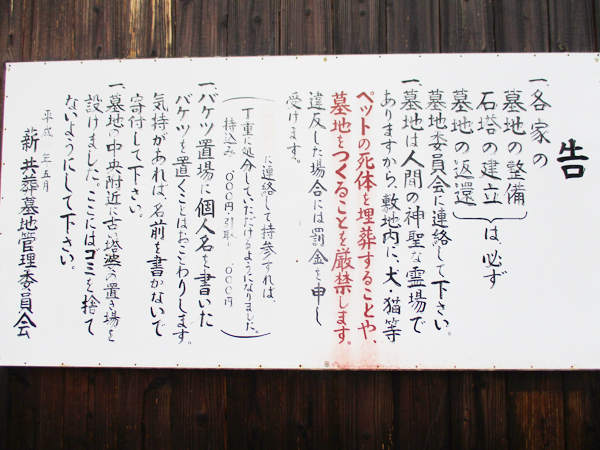 告
一、各家の
墓地の整備
石塔の建立
墓地の返還
は、必ず
墓地委員会に連絡して下さい。
一、墓地は人間の神聖な霊場で
ありますから、敷地内に、犬・猫等
ペットの死体を埋葬することや、
墓地をつくることを厳禁します。
違反した場合には罰金を申し
受けます。
に連絡して持参すれば、
丁重に処分していただけるようになりました。
持込み 000円・引取 000円
一、バケツ置場に個人名を書いた
バケツを置くことはおことわりします。
気持があれば、名前を書かないで
寄付して下さい。
一、墓地の中央附近に古い塔婆の置き場を
設けました。ここにはゴミを捨て
ないようにして下さい。
平成 年五月
薪共葬墓地管理委員会